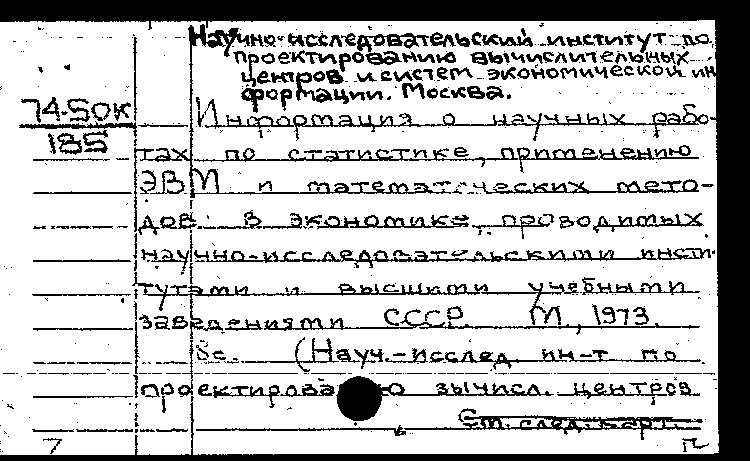 Научно-исследовательский институт по
проектированию вычислительных
центров и систем экономической ин
формации. Москва.
74-5ОК
185
Информация о научных рабо-
тах по статистике, применению
ЭВМ и математических мето-
дов в экономике, проводимых
научно-исследовательскими инсти-
тутами и высшими учебными
заведениями СССР. М., 1973.
8с. (Науч.-исслед. ин-т по
проектированию вычисл. центров
См. след. карт.
7